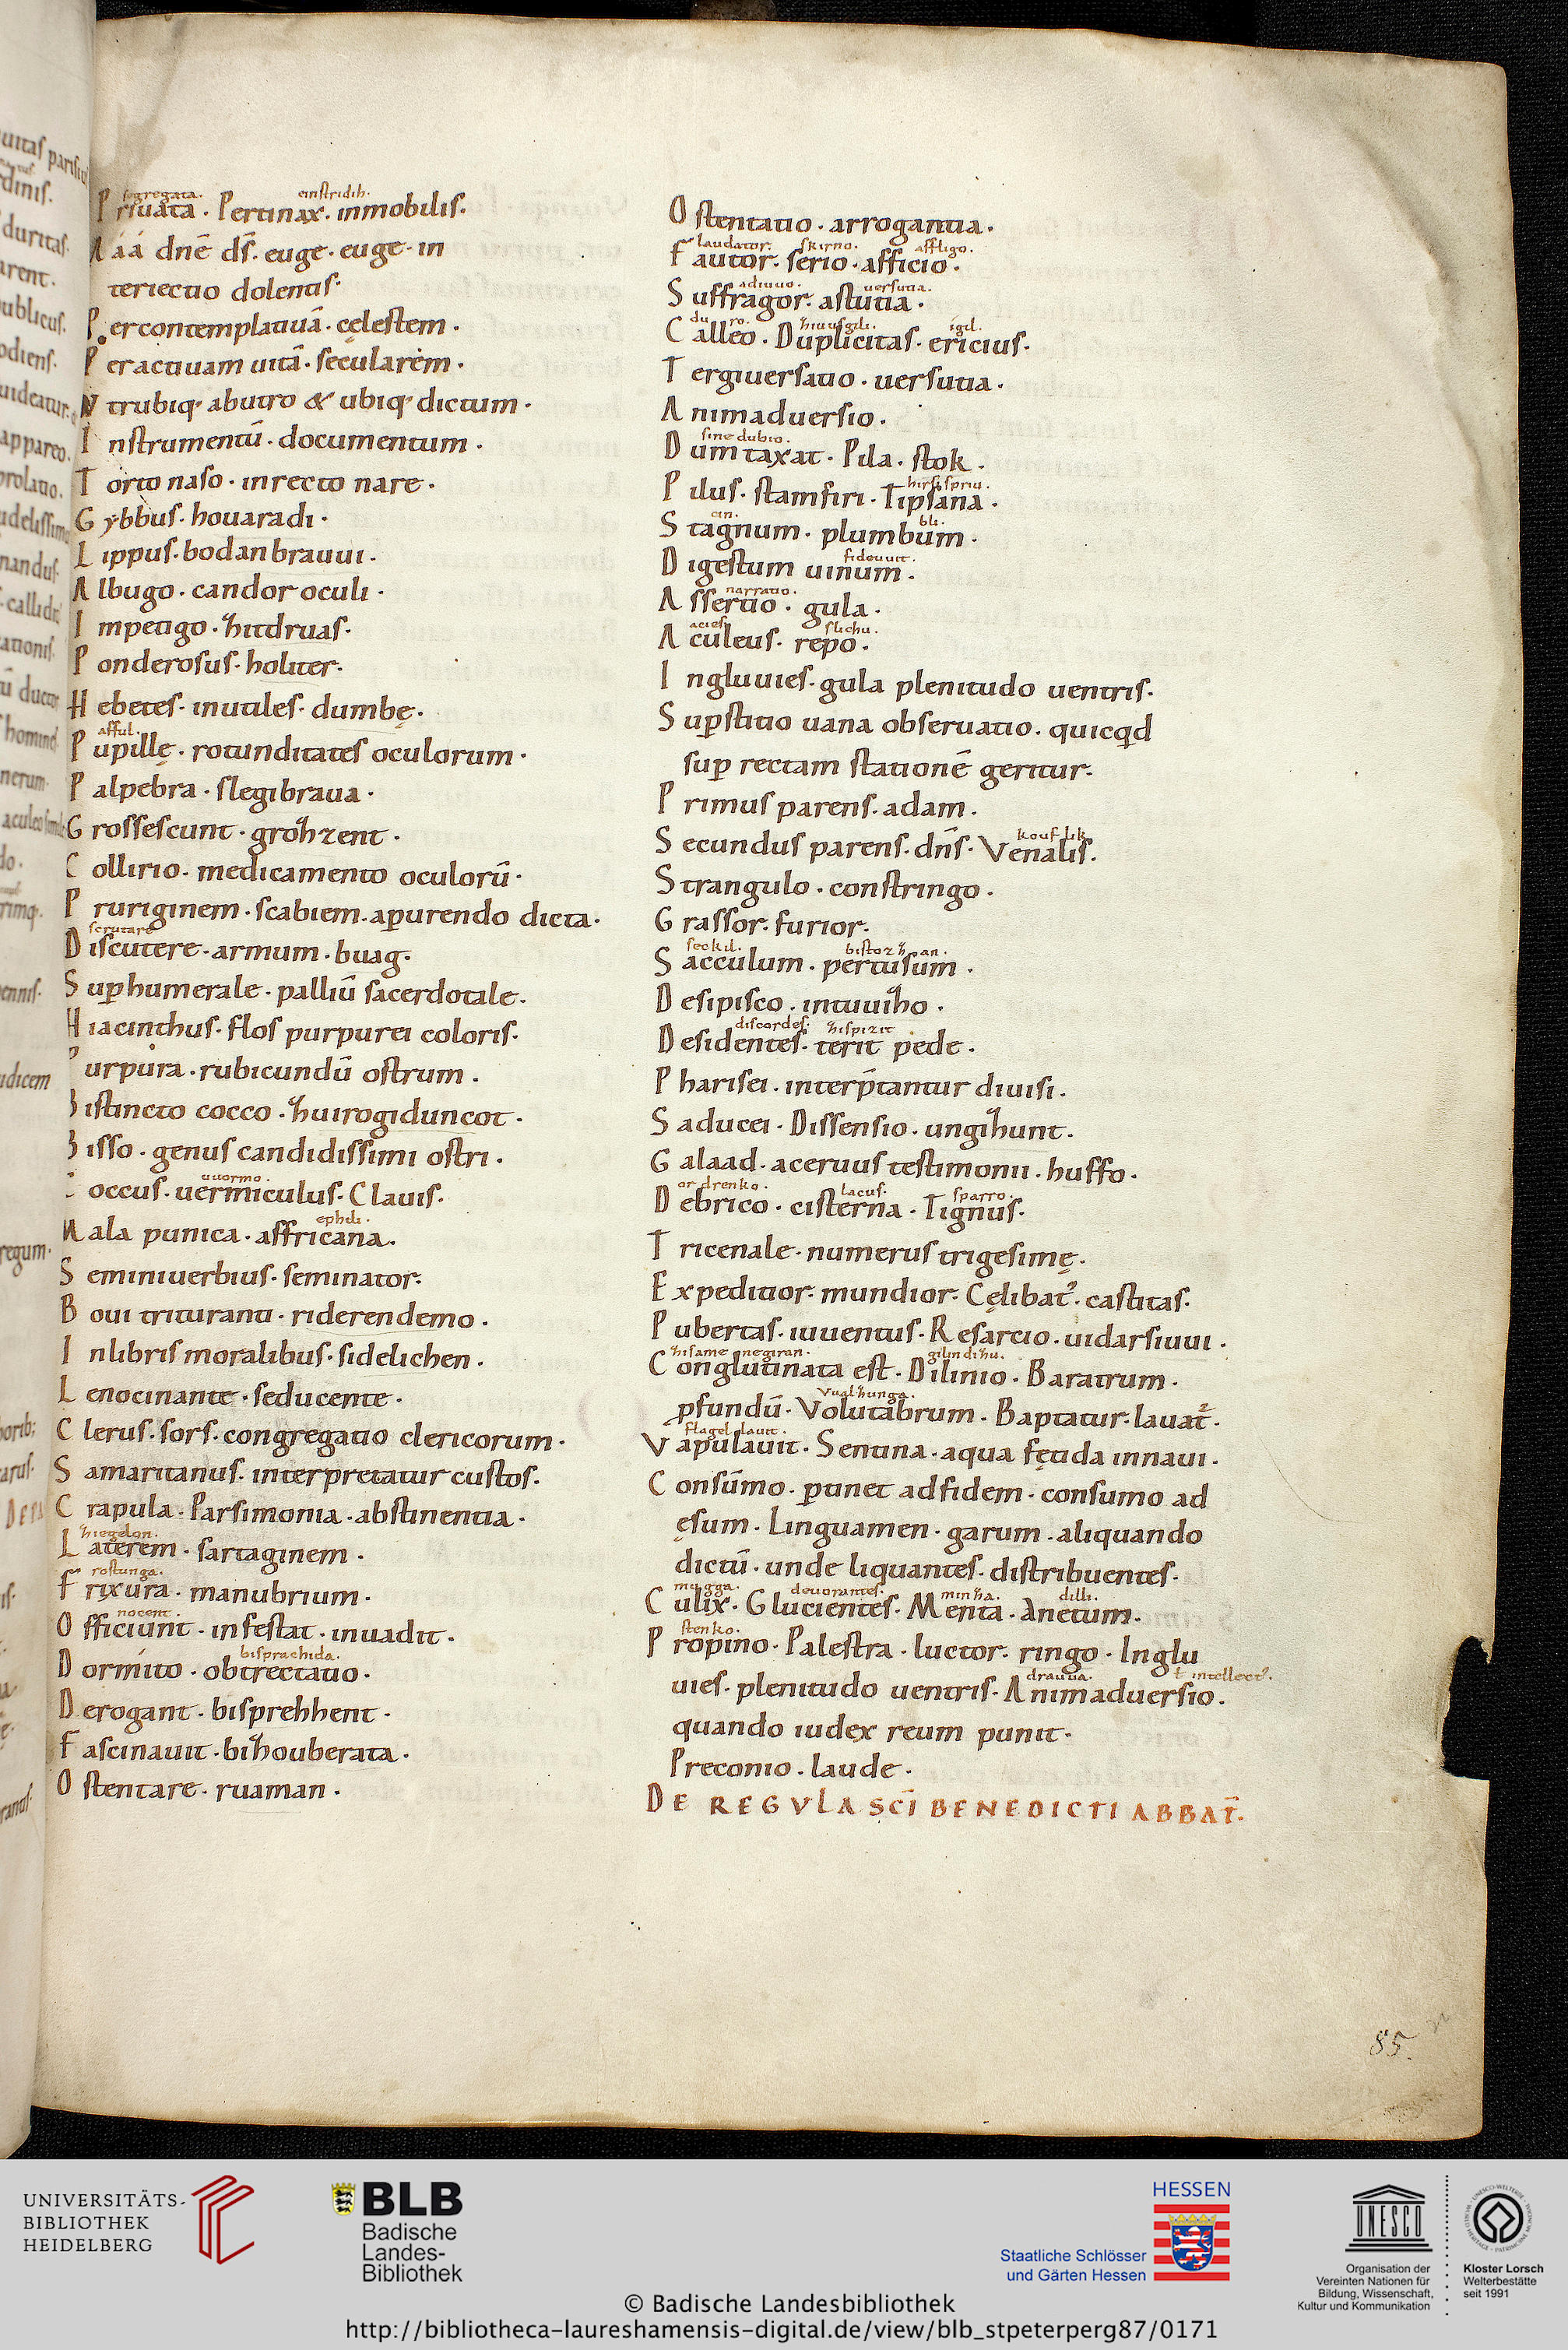 segregata. einstridih.
Priuata. Pertinax. inmobilis.
A áá dnē ds̄. euge. euge. in
teriectio dolentis.
Percontemplatiuā. cęlestem.
Peractiuam uitā. secularem.
Vtrubiq. abutro & ubiq. dictum.
Instrumentū. documentum.
Torto naso. inrecto nare.
Gybbus. houaradi.
Lippus. bodanbrauui.
Albugo. candor oculi.
Impetigo. hitdruas.
Ponderosus. holiter.
Hebetes. inutiles. dumbę.
afful.
Pupillę. rotunditates oculorum.
Palpebra. slegibraua.
Grossescunt. grohzent.
Collirio. medicamento oculorū.
Pruriginem. scabiem. apurendo dicta.
scrutare
Discutere. armum. buag.
Suphumerale. palliū sacerdotale.
Hiacinthus. flos purpurei coloris.
Purpura. rubicundū ostrum.
Bistincto cocco. huirogiduncot.
Bisso. genus candidissimi ostri.
uuormo.
Coccus. uermiculus. Clauis.
ephili.
Mala punica. affricana.
Seminiuerbius. seminator.
Boui trituranti. riderendemo.
Inlibris moralibus. sidelichen.
Lenocinante. seducente.
Clerus. sors. congregatio clericorum.
Samaritanus. interpretatur custos.
Crapula. Parsimonia. abstinentia.
hiegelon.
Laterem. sartaginem.
rostunga.
Frixura. manubrium.
nocent.
Officiunt. infestat. inuadit.
bisprachida.
Dormito. obtrectatio.
Derogant. bisprehhent.
Fascinauit. bihouberata.
Ostentare. ruaman.
Ostentatio. arrogantia.
laudator. skirno. affligo.
Fautor. serio. afficio.
adiuuo. uersutia.
Suffragor. astutia.
du ro. hiuusgili. igil.
Calleo. Duplicitas. ericius.
Tergiuersatio. uersutia.
Animaduersio.
sine dubio.
Dumtaxat. Pila. stok.
hirsispriu.
Pilus. stamfiri. Tipsana.
cin. bli.
Stagnum. plumbum.
fideuuit.
Digestum uinum.
narratio.
Assertio. gula.
acies slichu.
Aculeus. repo.
Ingluuies. gula plenitudo uentris.
Supstitio uana obseruatio. quicqd
sup rectam stationē geritur.
Primus parens. adam.
kouflik
Secundus parens. dns̄. Venalis.
Strangulo. constringo.
Grassor. furior.
seckil. bistozhan.
Sacculum. pertusum.
Desipisco. intuuiho.
discordes. hispizit
Desidentes. terit pede.
Pharisei. interp̄tantur diuisi.
Saducei. Dissensio. ungihunt.
Galaad. aceruus testimonii. huffo.
ar drenko. lacus. sparro
Debrico. cisterna. Tignus.
Tricenale. numerus trigesimę.
Expeditior. mundior. Cęlibat'. castitas.
Pubertas. iuuentus. Resarcio. uidarsiuui.
hisamenegiran. gilindihu.
Conglutinata est. Dilinio. Baratrum.
uualhunga.
pfundū. Volutabrum. Baptatur. lauat'.
flagellauit.
Vapulauit. Sentina. aqua fętida innaui.
Consūmo. ptinet adfidem. consumo ad
ęsum. Linguamen. garum. aliquando
dictū. unde liquantes. distribuentes.
mugga. deuorantes. minha. dilli.
Culix. Glucientes. Menta. Anetum.
stenko.
Propino. Palestra. luctor. ringo. Inglu
drauua. ł intellect'.
uies. plenitudo uentris. Animaduersio.
quando iudex reum punit.
Preconio. laude.
DE REGVLA SCI BENEDICTI ABBAT̄.
85.
UNIVERSITÄTS-
BIBLIOTHEK
HEIDELBERG
BLB
Badische
Landes-
Bibliothek
HESSEN
Staatliche Schlösser
und Gärten Hessen
UNESCO
Organisation der
Vereinten Nationen für
Bildung, Wissenschaft,
Kultur und Kommunikation
Kloster Lorsch
Welterbestätte
seit 1991
© Badische Landesbibliothek
http://bibliotheca-laureshamensis-digital.de/view/blb_stpeterperg87/0171